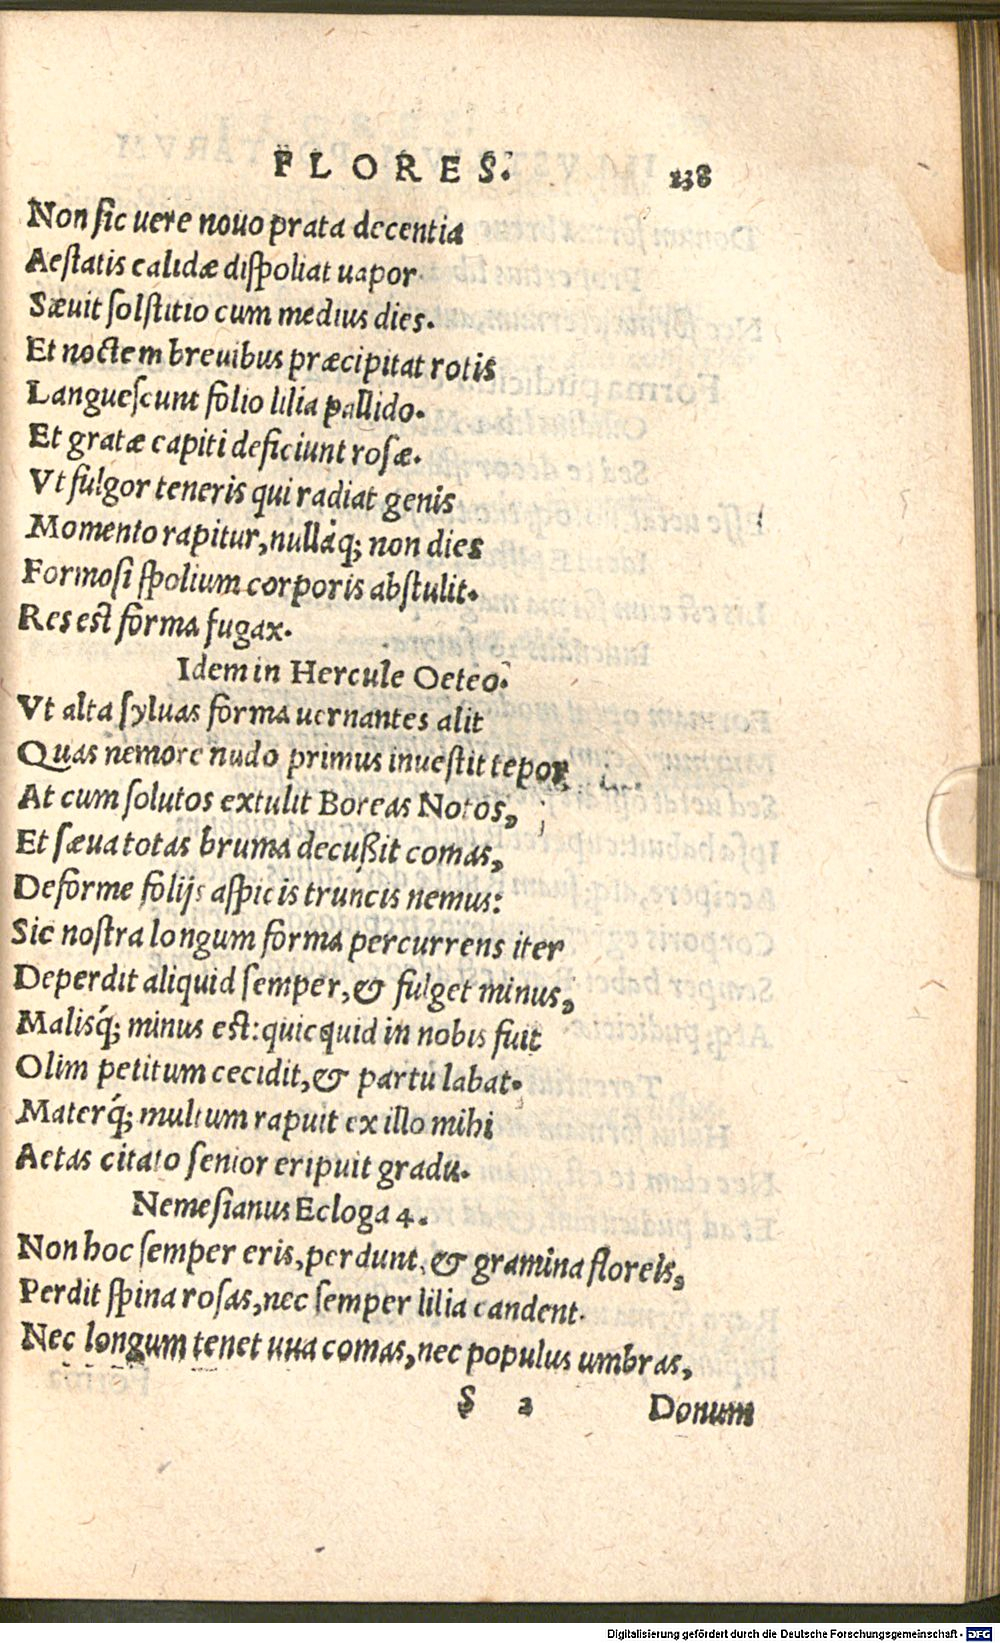 FLORES. 138
Non sic uere nouo prata decentia
Aestatis calidæ dispoliat uapor
Sæuit solstitio cum medius dies.
Et noctem breuibus præcipitat rotis
Languescunt folio lilia pallido.
Et gratæ capiti deficiunt rosæ.
Vt fulgor teneris qui radiat genis
Momento rapitur, nullaq́; non dies
Formosi spolium corporis abstulit.
Res est forma fugax.
Idem in Hercule Oeteo.
Vt alta syluas forma uernantes alit
Quas nemore nudo primus inuestit tepor
At cum solutos extulit Boreas Notos,
Et sæua totas bruma decußit comas,
Deforme folijs aspicis truncis nemus:
Sic nostra longum forma percurrens iter
Deperdit aliquid semper, & fulget minus,
Malisq́; minus est: quicquid in nobis fuit
Olim petitum cecidit, & partu labat.
Materq́; multum rapuit ex illo mihi
Aetas citato senior eripuit gradu.
Nemesianus Ecloga 4.
Non hoc semper eris, perdunt, & gramina floreis,
Perdit spina rosas, nec semper lilia candent.
Nec longum tenet uua comas, nec populus umbras,
S 2 Donum
Digitalisierung gefördert durch die Deutsche Forschungsgemeinschaft - DFG